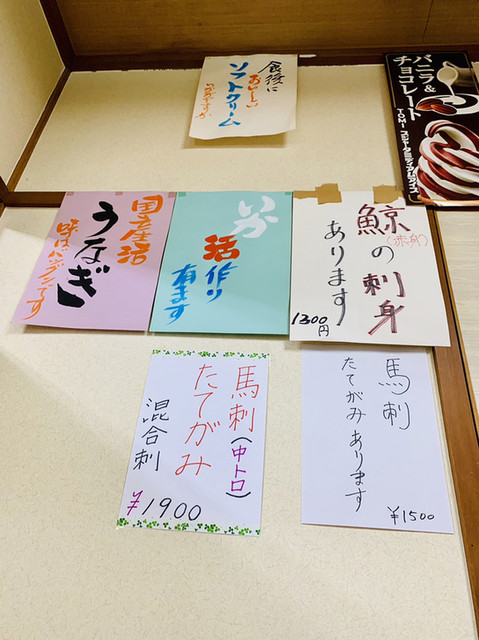 食後に
おいしい
ソフトクリーム
いかがですか
バニラ&
チョコレート
国産活
うなぎ
味はバツグンです
いか
活作り
有ます
鯨の刺身
(赤身)
あります
1300円
馬刺(中トロ)
たてがみ
混合刺
¥1900
馬刺
たてがみあります
¥1500